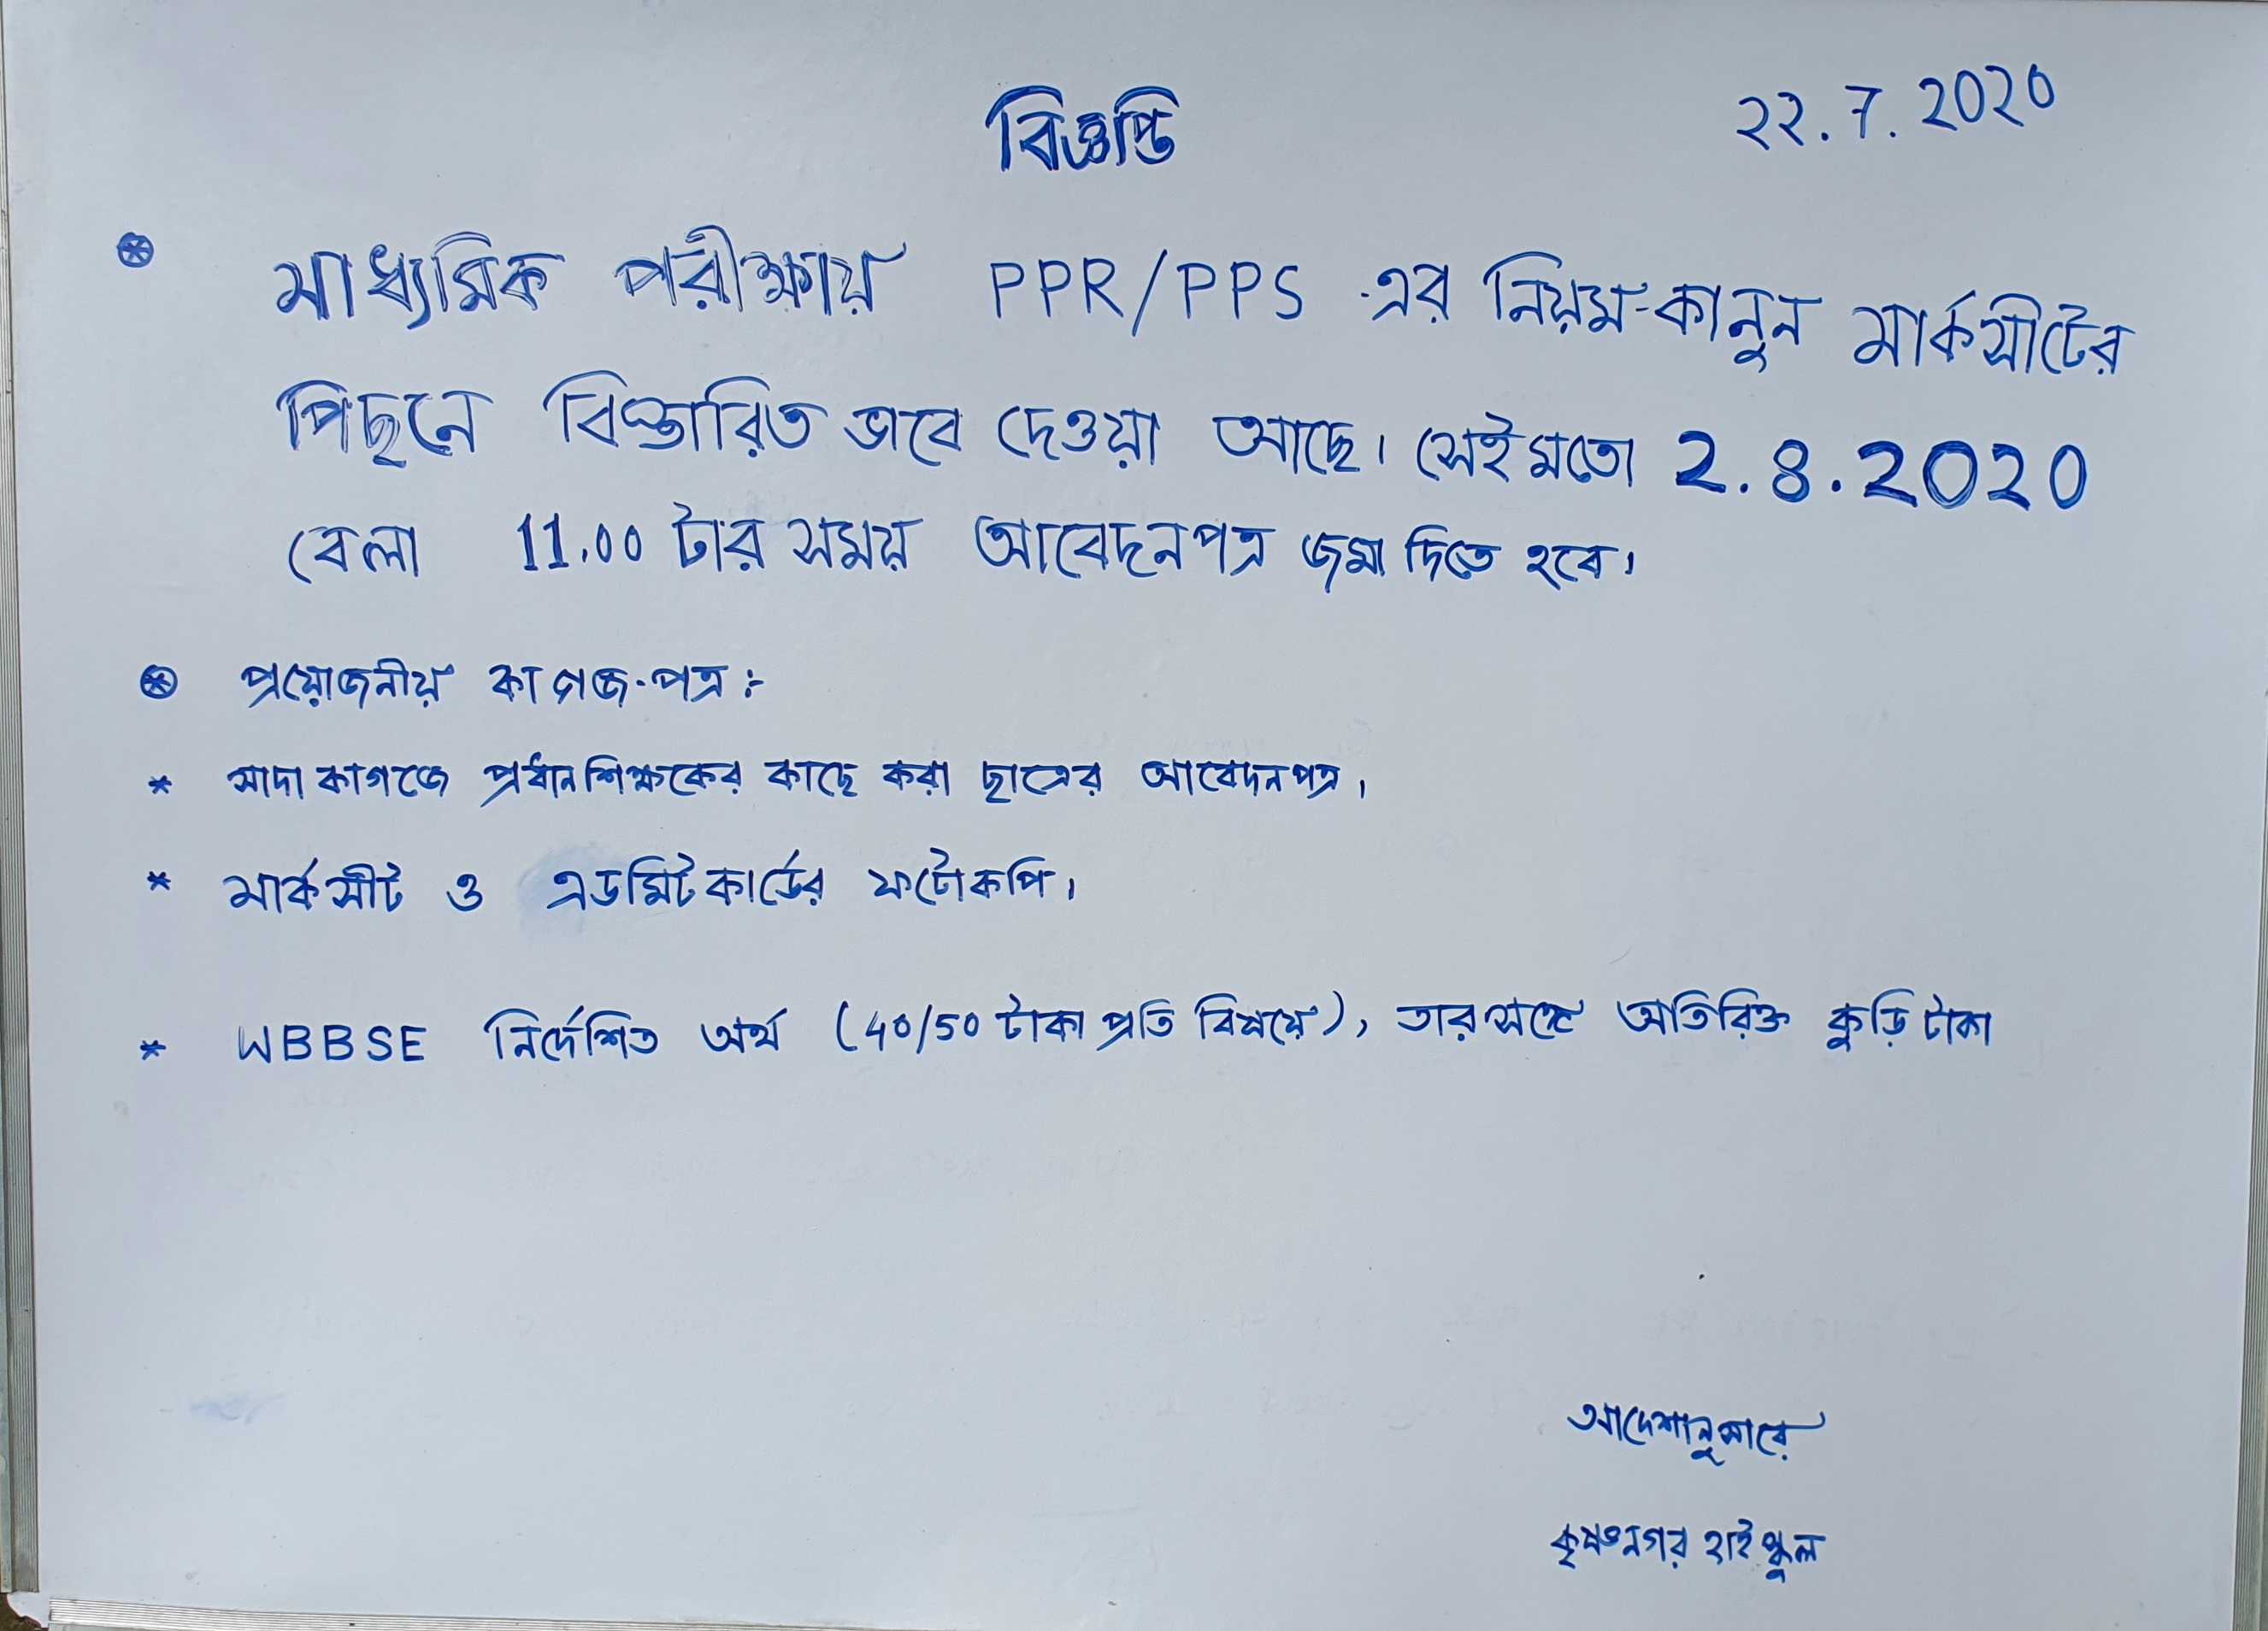 বিজ্ঞপ্তি
22.7.2020
মাধ্যমিক পরীক্ষায় PPR/PPS -এর নিয়ম-কানুন মার্কসীটের
পিছনে বিস্তারিত ভাবে দেওয়া আছে। সেইমতো 2.8.2020
বেলা 11.00 টার সময় আবেদনপত্র জমা দিতে হবে।
প্রয়োজনীয় কাগজ-পত্র :-
* সাদা কাগজে প্রধান শিক্ষকের কাছে করা ছাত্রের আবেদনপত্র।
* মার্কসীট ও এডমিট কার্ডের ফটোকপি।
* WBBSE নির্দেশিত অর্থ (40/50 টাকা প্রতি বিষয়ে), তার সঙ্গে অতিরিক্ত কুড়ি টাকা
আদেশানুসারে
কৃষ্ণনগর হাই স্কুল